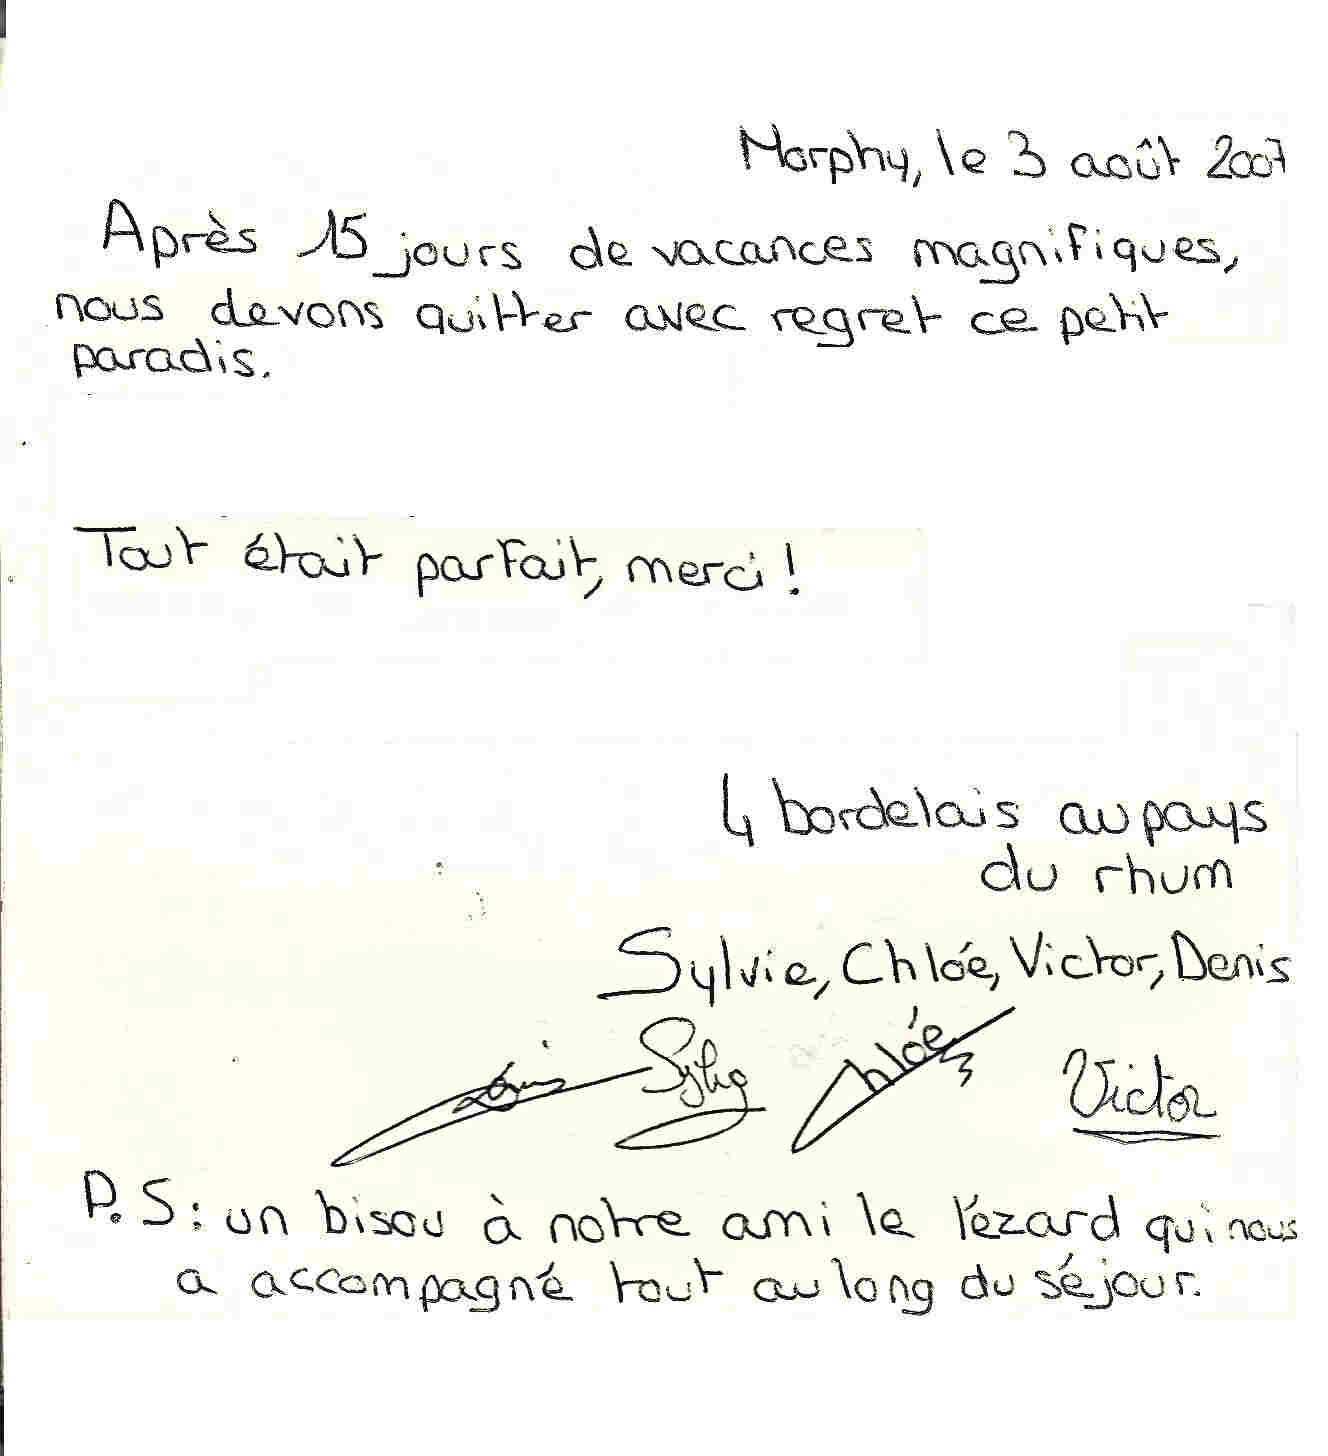 Morphy, le 3 août 2007
Après 15 jours de vacances magnifiques,
nous devons quitter avec regret ce petit
paradis.
Tout était parfait, merci !
4 bordelais au pays
du rhum
Sylvie, Chloé, Victor, Denis
Denis Sylvie Chloé Victor
P.S : un bisou à notre ami le lézard qui nous
a accompagné tout au long du séjour.